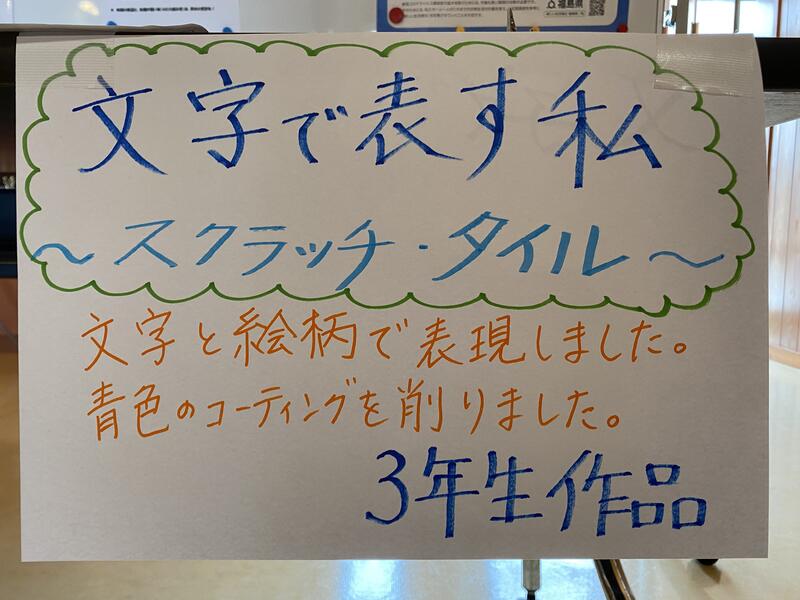 福島県
文字で表す私
～スクラッチ・タイル～
文字と絵柄で表現しました。
青色のコーティングを削りました。
3年生作品